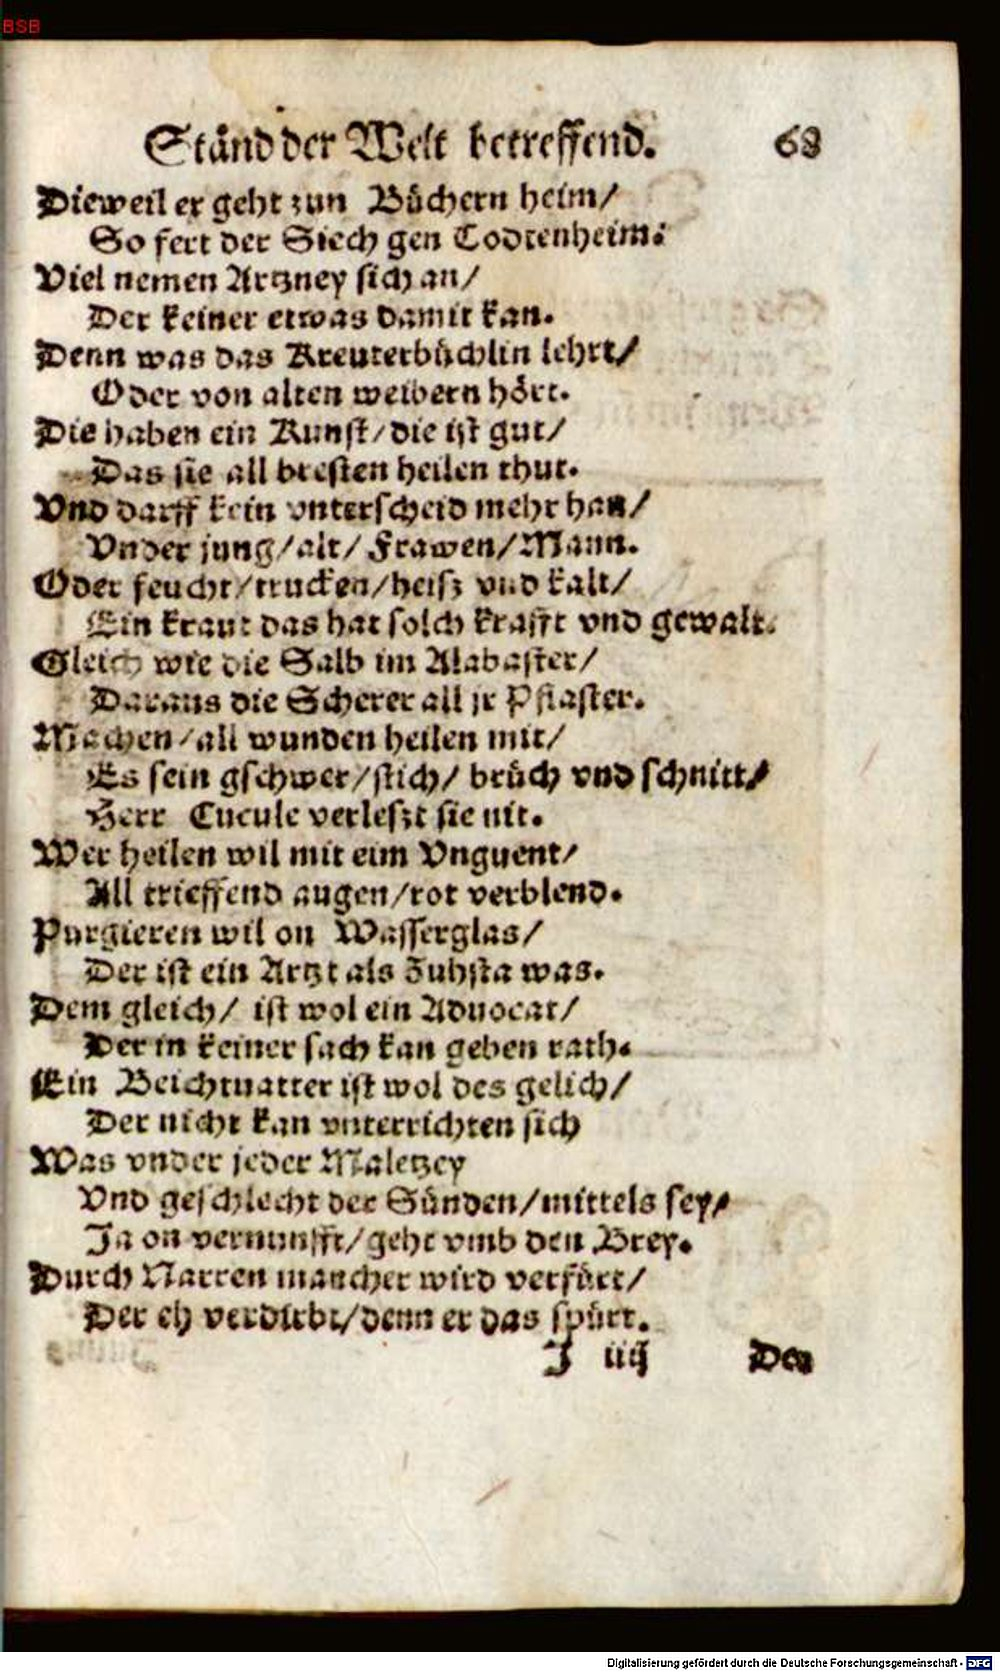 BSB
Ständ der Welt betreffend. 68
Dieweil er geht zun Büchern heim/
So fert der Siech gen Todtenheim:
Viel nemen Artzney sich an/
Der keiner etwas damit kan.
Denn was das Kreuterbüchlin lehrt/
Oder von alten weibern hört.
Die haben ein Kunst/die ist gut/
Das sie all bresten heilen thut.
Vnd darff kein vnterscheid mehr han/
Vnder jung/alt/Frawen/Mann.
Oder feucht/trucken/heisz vnd kalt/
Ein kraut das hat solch krafft vnd gewalt.
Gleich wie die Salb im Alabaster/
Daraus die Scherer all jr Pflaster.
Machen/all wunden heilen mit/
Es sein gschwer/stich/brüch vnd schnitt/
Herr Cucule verleszt sie nit.
Wer heilen wil mit eim Vnguent/
All trieffend augen/rot verblend.
Purgieren wil on Wasserglas/
Der ist ein Artzt als Zuhsta was.
Dem gleich/ ist wol ein Aduocat/
Der in keiner sach kan geben rath.
Ein Beichtuatter ist wol des gelich/
Der nicht kan vnterrichten sich
Was vnder jeder Maletzey
Vnd geschlecht der Sünden/mittels sey/
Ja on vernunfft/geht vmb den Brey.
Durch Narren mancher wird verfürt/
Der eh verdirbt/denn er das spürt.
J iiij Der
Digitalisierung gefördert durch die Deutsche Forschungsgemeinschaft - DFG